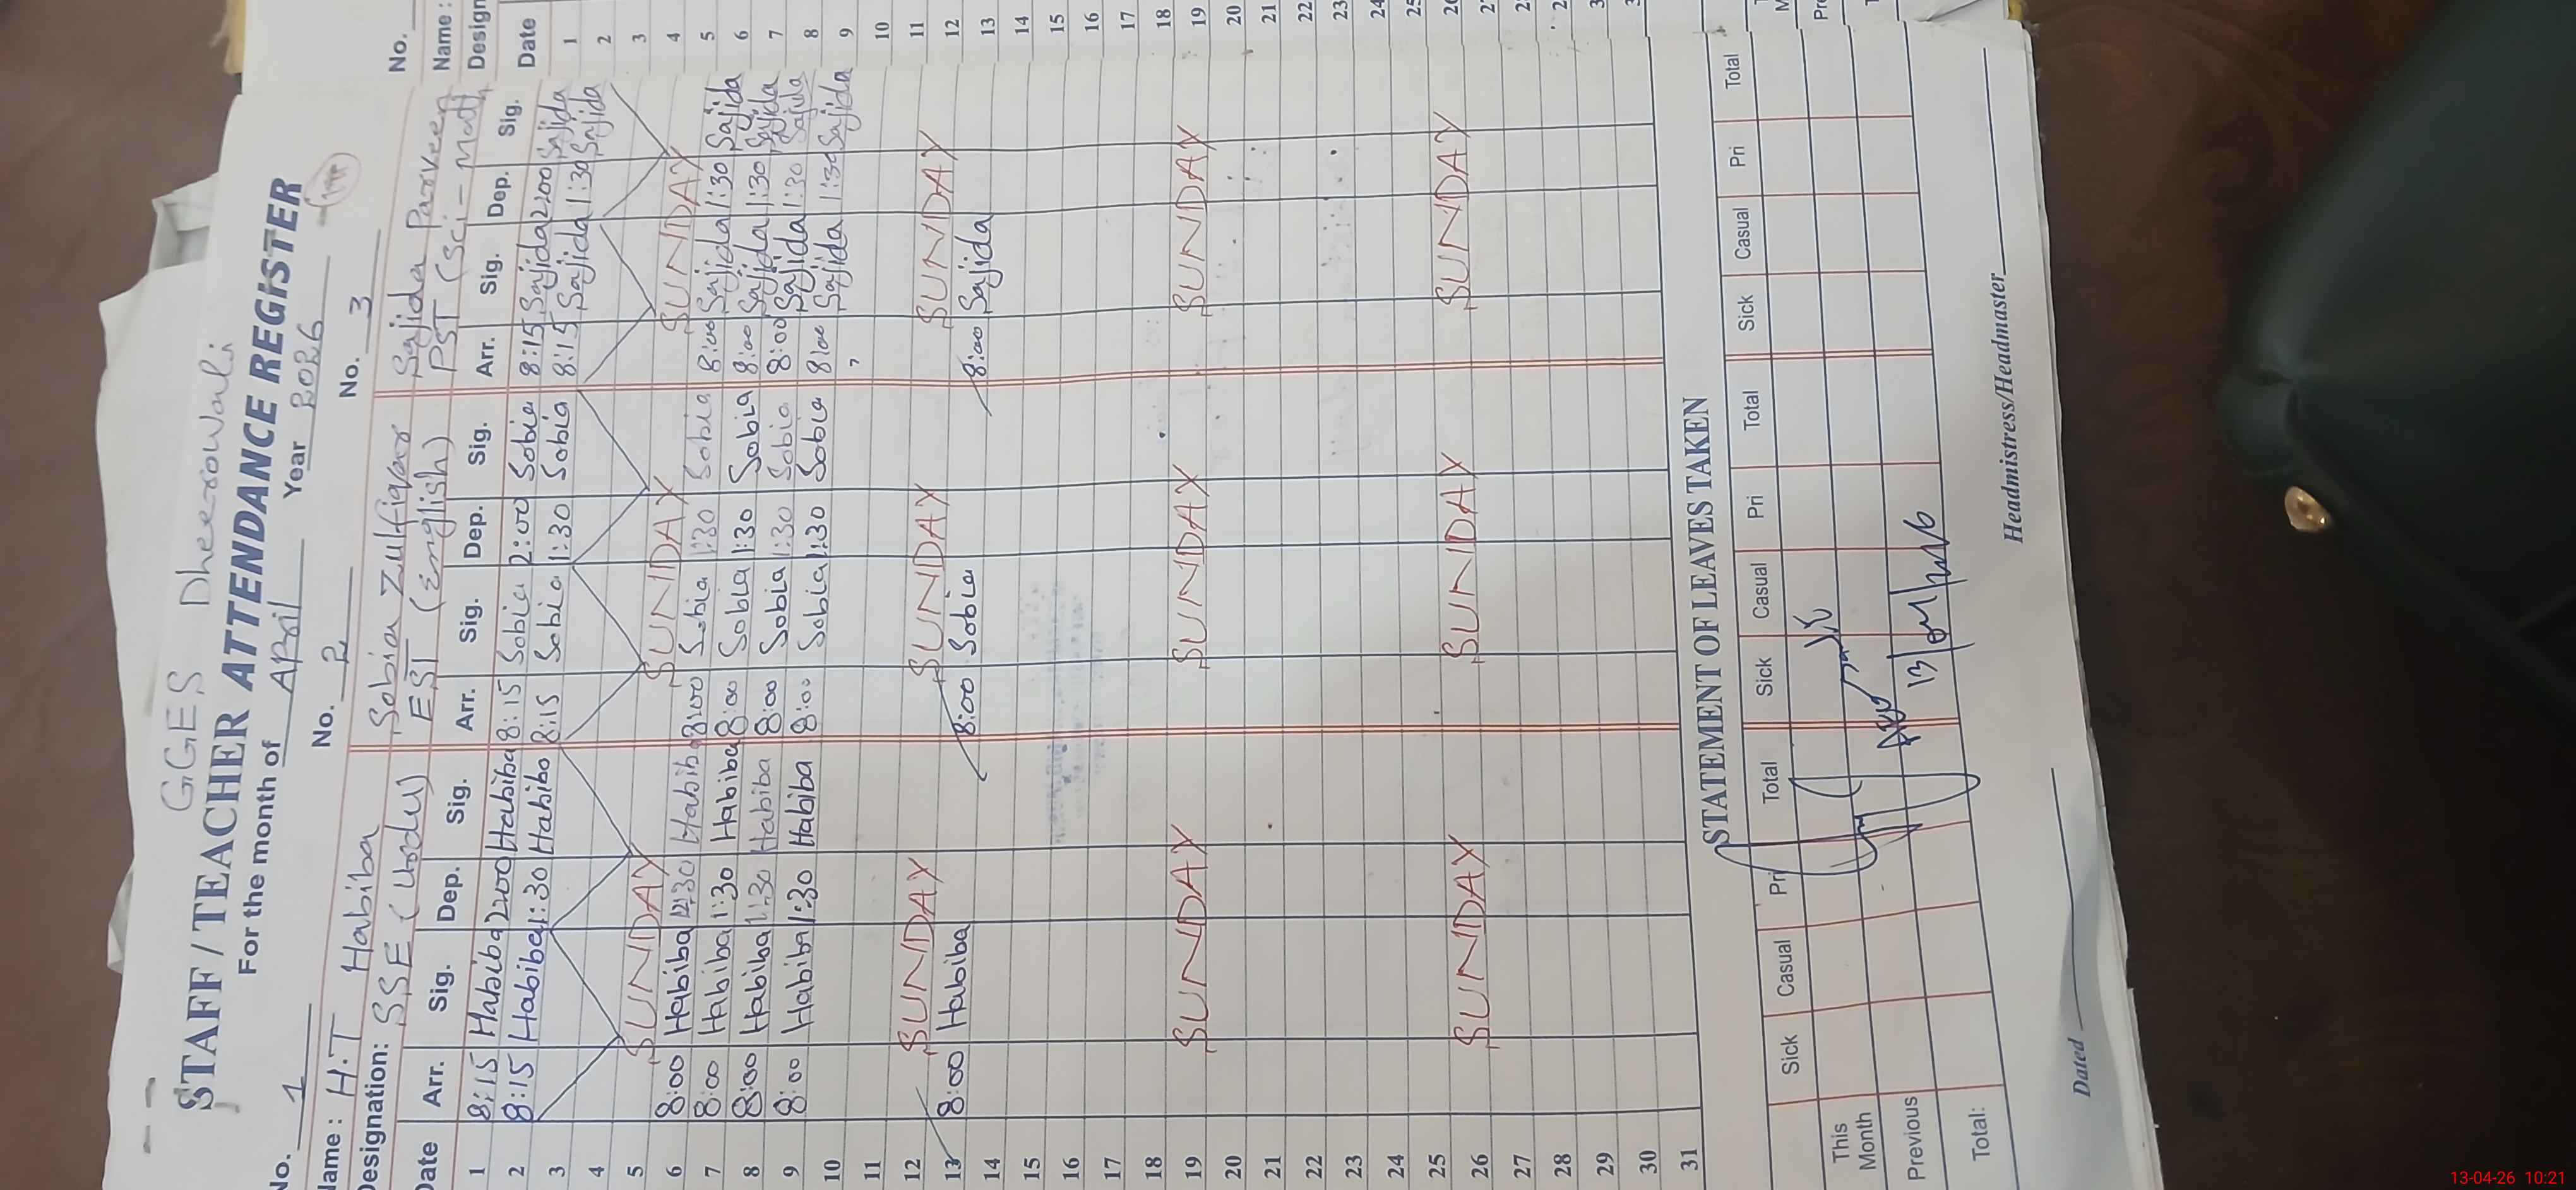 GGES Dheerowali
STAFF / TEACHER ATTENDANCE REGISTER
For the month of APril Year 2026
No. 1 No. 2 No. 3 No.
Name : H.T Habiba Sobia Zulfiqar Sajida Parveen Name :
Designation: SSE (Urdu) EST (English) PST (Sci - Math Design
Date Arr. Sig. Dep. Sig. Arr. Sig. Dep. Sig. Arr. Sig. Dep. Sig. Date
1 8:15 Habiba 2:00 Habiba 8:15 Sobia 2:00 Sobia 8:15 Sajida 2:00 Sajida 1
2 8:15 Habiba 1:30 Habiba 8:15 Sobia 1:30 Sobia 8:15 Sajida 1:30 Sajida 2
3 3
4 4
5 SUNDAY SUNDAY SUNDAY 5
6 8:00 Habiba Habiba 8:00 Sobia 1:30 Sobia 8:00 Sajida 1:30 Sajida 6
7 8:00 Habiba 1:30 Habiba 8:00 Sobia 1:30 Sobia 8:00 Sajida 1:30 Sajida 7
8 8:00 Habiba 1:30 Habiba 8:00 Sobia 1:30 Sobia 8:00 Sajida 1:30 Sajida 8
9 8:00 Habiba 1:30 Habiba 8:00 Sobia 1:30 Sobia 8:00 Sajida 1:30 Sajida 9
10 10
11 11
12 SUNDAY SUNDAY SUNDAY 12
13 8:00 Habiba 8:00 Sobia 8:00 Sajida 13
14 14
15 15
16 16
17 17
18 18
19 SUNDAY SUNDAY SUNDAY 19
20 20
21 21
22 22
23 23
24 24
25 25
26 SUNDAY SUNDAY SUNDAY 26
27
28
29
30
31
STATEMENT OF LEAVES TAKEN
Sick Casual Pri Total Sick Casual Pri Total Sick Casual Pri Total
This Month
Previous
Total:
13/04/2026
Dated Headmistress/Headmaster
13-04-26 10:21